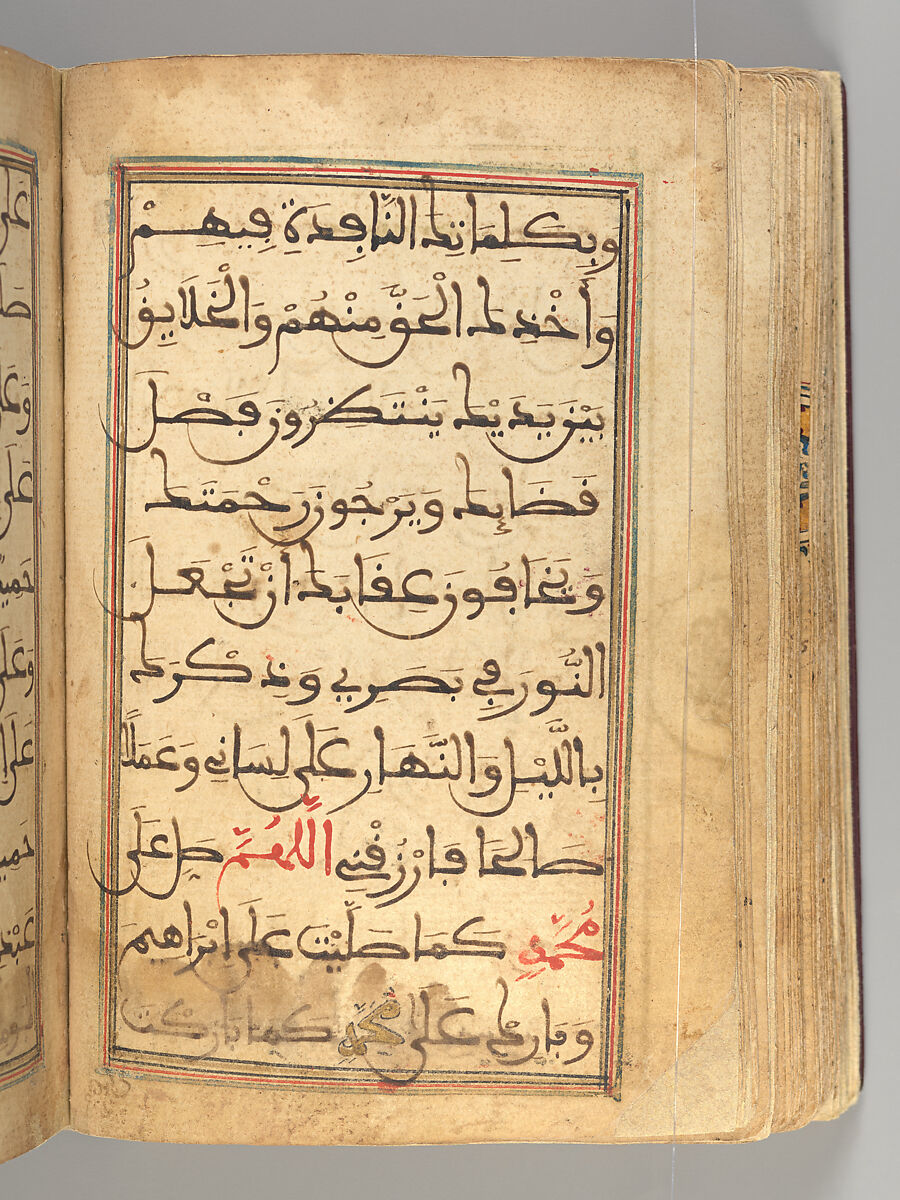 وَبِكَلِمَاتِكَ النَّافِذَةِ فِيهِمْ
وَأَخْذِكَ الْحَقَّ مِنْهُمْ وَالْخَلَايِقُ
بَيْنَ يَدَيْكَ يَنْتَظِرُونَ فَصْلَ
قَضَايِٕكَ وَيَرْجُونَ رَحْمَتَكَ
وَيَخَافُونَ عِقَابَكَ أَنْ تَجْعَلَ
النُّورَ فِي بَصَرِي وَذِكْرَكَ
بِاللَّيْلِ وَالنَّهَارِ عَلَى لِسَانِي وَعَمَلًا
صَالِحًا فَارْزُقْنِي اللَّهُمَّ صَلِّ عَلَى
مُحَمَّدٍ كَمَا صَلَّيْتَ عَلَى اِبْرَاهِيمَ
وَبَارِكْ عَلَى مُحَمَّدٍ كَمَا بَارَكْتَ